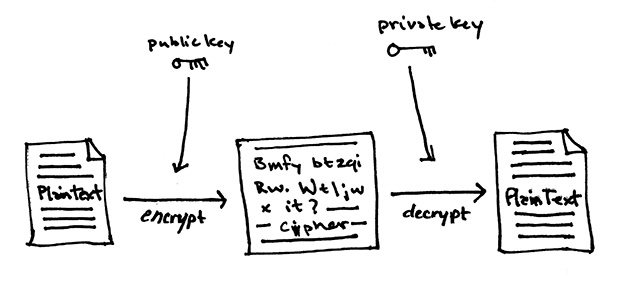 public key
private key
PlainText
encrypt
Bmfy btzqi
Rw. Wtljw
x it?
cipher
decrypt
PlainText